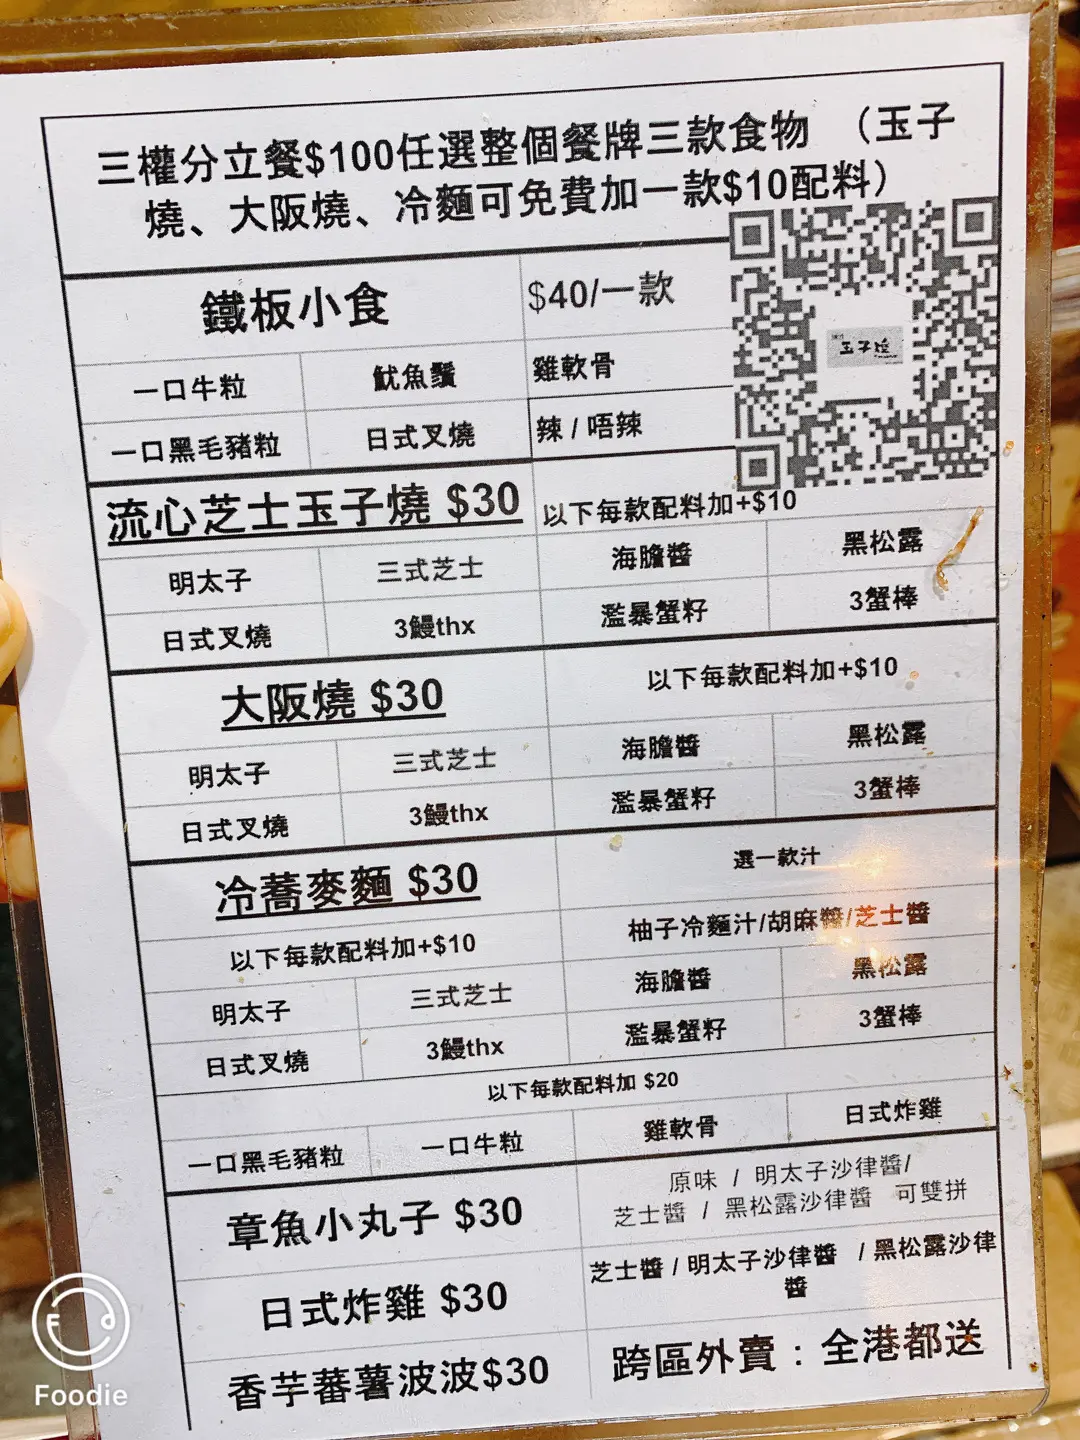 三權分立餐$100任選整個餐牌三款食物 （玉子
燒、大阪燒、冷麵可免費加一款$10配料）
鐵板小食 $40/一款
玉子燒
一口牛粒 魷魚鬚 雞軟骨
一口黑毛豬粒 日式叉燒 辣 / 唔辣
流心芝士玉子燒 $30 以下每款配料加+$10
明太子 三式芝士 海膽醬 黑松露
日式叉燒 3鰻thx 濫暴蟹籽 3蟹棒
大阪燒 $30 以下每款配料加+$10
明太子 三式芝士 海膽醬 黑松露
日式叉燒 3鰻thx 濫暴蟹籽 3蟹棒
冷蕎麥麵 $30 選一款汁
以下每款配料加+$10 柚子冷麵汁/胡麻醬/芝士醬
明太子 三式芝士 海膽醬 黑松露
日式叉燒 3鰻thx 濫暴蟹籽 3蟹棒
以下每款配料加 $20
一口黑毛豬粒 一口牛粒 雞軟骨 日式炸雞
章魚小丸子 $30 原味 / 明太子沙律醬/
芝士醬 / 黑松露沙律醬 可雙拼
日式炸雞 $30 芝士醬 / 明太子沙律醬 / 黑松露沙律
醬
香芋蕃薯波波$30 跨區外賣：全港都送
Foodie